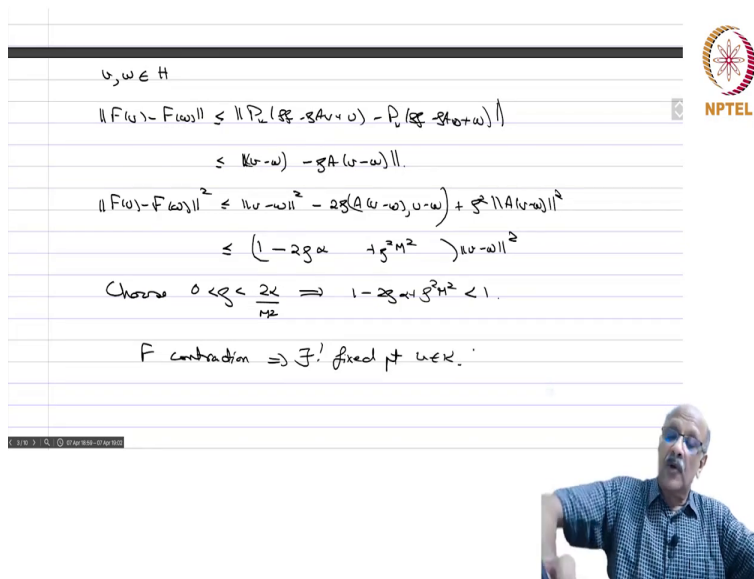 v, w ∈ H
‖F(v) - F(w)‖ ≤ ‖P_K(ρf - ρAv + v) - P_K(ρf - ρAw + w)‖
≤ ‖(v-w) - ρA(v-w)‖.
‖F(v) - F(w)‖² ≤ ‖v-w‖² - 2ρ(A(v-w), v-w) + ρ²‖A(v-w)‖²
≤ (1 - 2ρα + ρ²M²)‖v-w‖²
Choose 0 < ρ < 2α/M² ⟹ 1 - 2ρα + ρ²M² < 1.
F contraction ⟹ ∃! fixed pt u ∈ K.
NPTEL
3/10
07 Apr 18:59 – 07 Apr 19:02